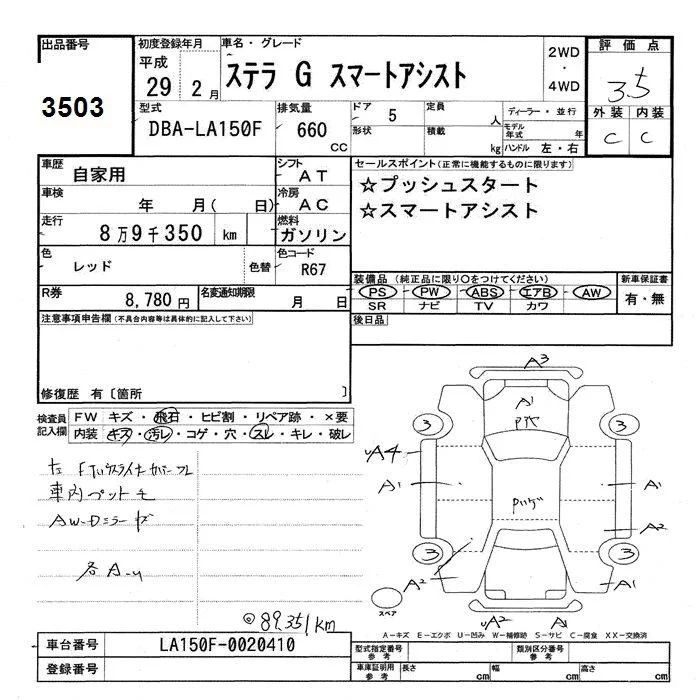 出品番号
3503
初度登録年月
平成
29 2 月
車名・グレード
ステラ G スマートアシスト
2WD
・
4WD
評価点
3.5
外装 内装
C C
型式
DBA-LA150F
排気量
660
CC
ドア 5
形状
定員 人
積載 kg
ディーラー・並行
モデル年式 年
ハンドル 左・右
車歴
自家用
シフト
AT
車検
年 月( 日)
冷房
AC
走行
8万9千350 km
燃料
ガソリン
色
レッド
色替
色コード
R67
R券
8,780円
名変通知期限
月 日
セールスポイント(正常に機能するものに限ります)
☆プッシュスタート
☆スマートアシスト
装備品(純正品に限り○をつけてください)
PS PW ABS エアB AW
SR ナビ TV カワ
新車保証書
有・無
後日品
注意事項申告欄(不具合内容等は具体的に記入して下さい)
修復歴 有〔箇所 〕
検査員
記入欄
FW キズ・飛石・ヒビ割・リペア跡・×要
内装 キズ・汚レ・コゲ・穴・スレ・キレ・破レ
車内ペット毛
AW・Dミラーキズ
各A-U
◎89,351km
A3
A1
3
3
UA4
A1
A1
A2
3
3
A2
A1
UA2
A1
スペア
A-キズ E-エクボ U-凹み W-補修跡 S-サビ C-腐食 XX-交換済
車台番号
LA150F-0020410
登録番号
型式指定番号
参考
類別区分番号
参考
車庫証明用
参考
長さ cm
幅 cm
高さ cm